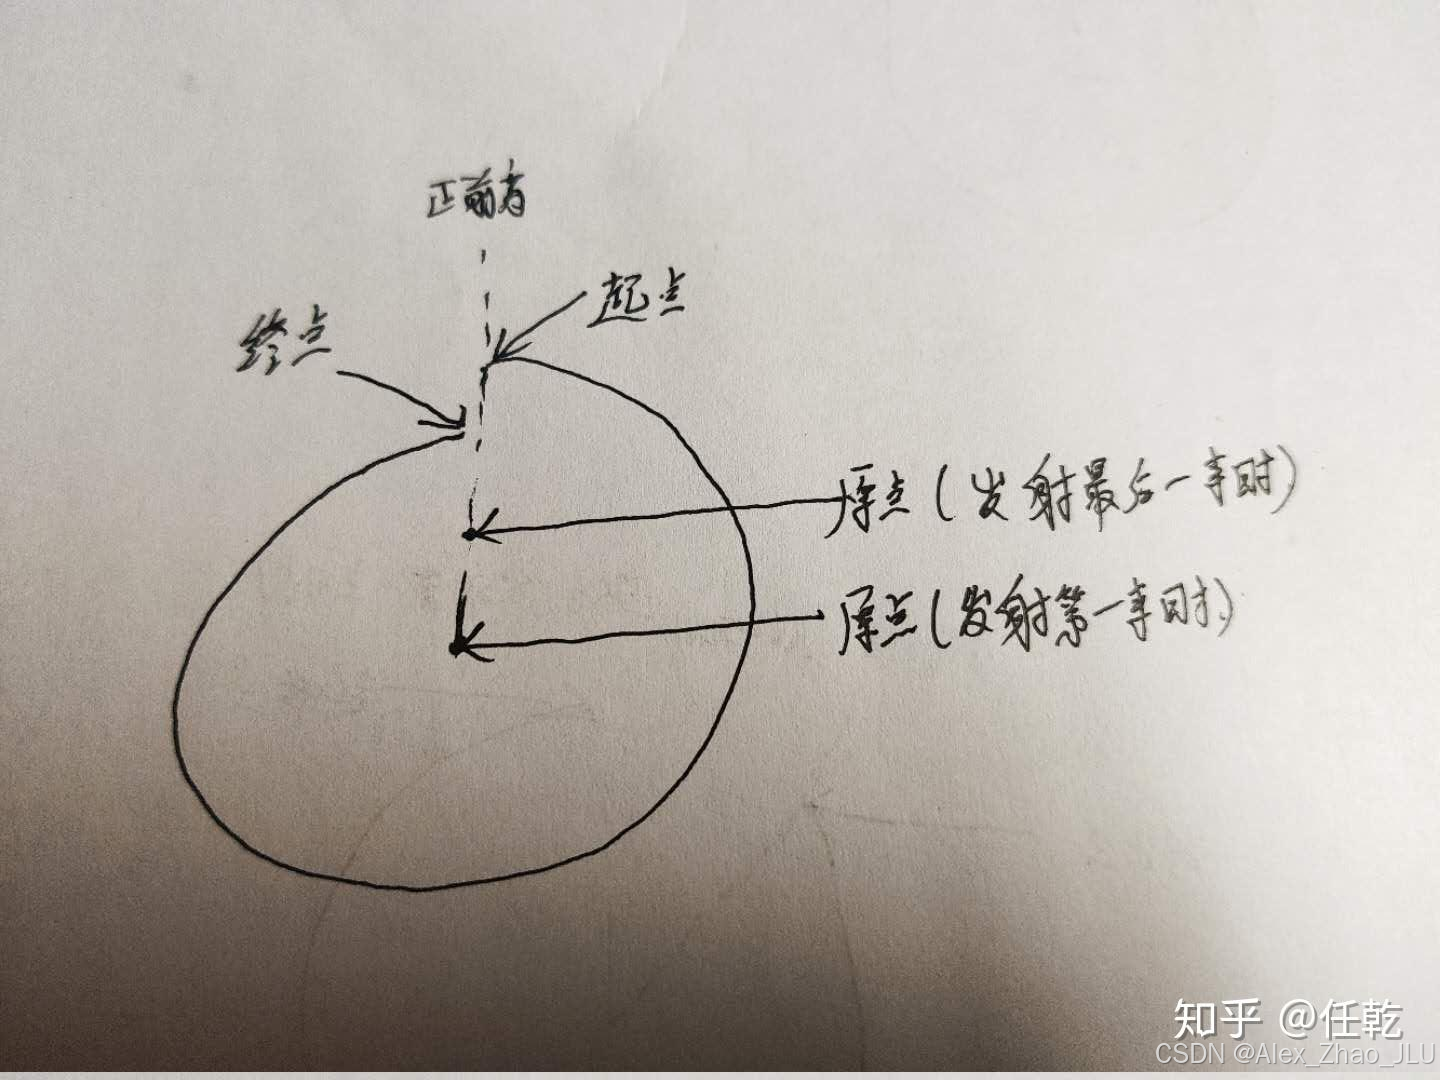 正前方
起点
终点
原点(发射最后一束时)
原点(发射第一束时)
知乎 @任乾
CSDN @Alex_Zhao_JLU